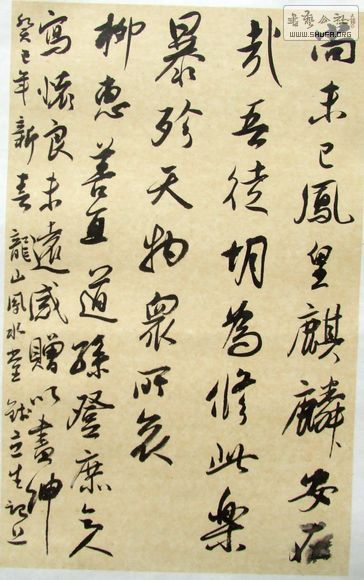 尚未已鳳皇麒麟安在
哉吾徒胡為修此樂
暴殄天物衆所哀
柳惠善直道孫登庶知人
寫懷良未遠感贈以書紳
癸巳年新春龍山水堂立生記
書藝公社
WWW.SHUFA.ORG